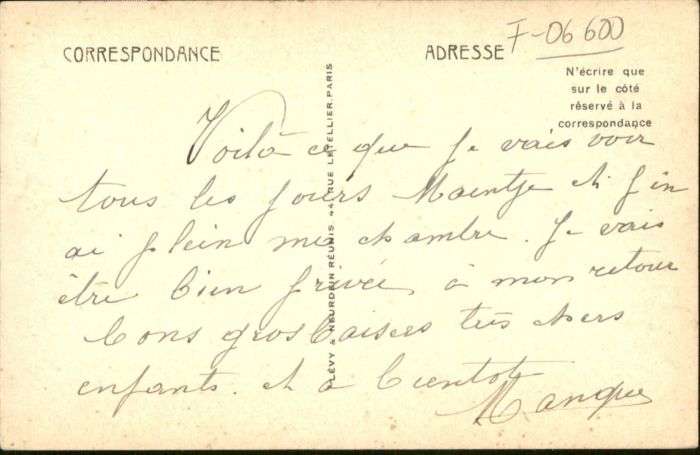 CORRESPONDANCE
ADRESSE
F-06 600
N'écrire que
sur le côté
réservé à la
correspondance
LÉVY & NEURDEIN RÉUNIS, 44, RUE LETELLIER, PARIS
Voilà ce que je vais voir
tous les jours et j'en
ai plein ma chambre. Je vais
être bien privée, à mon retour
bons gros baisers très chers
enfants. et à bientot